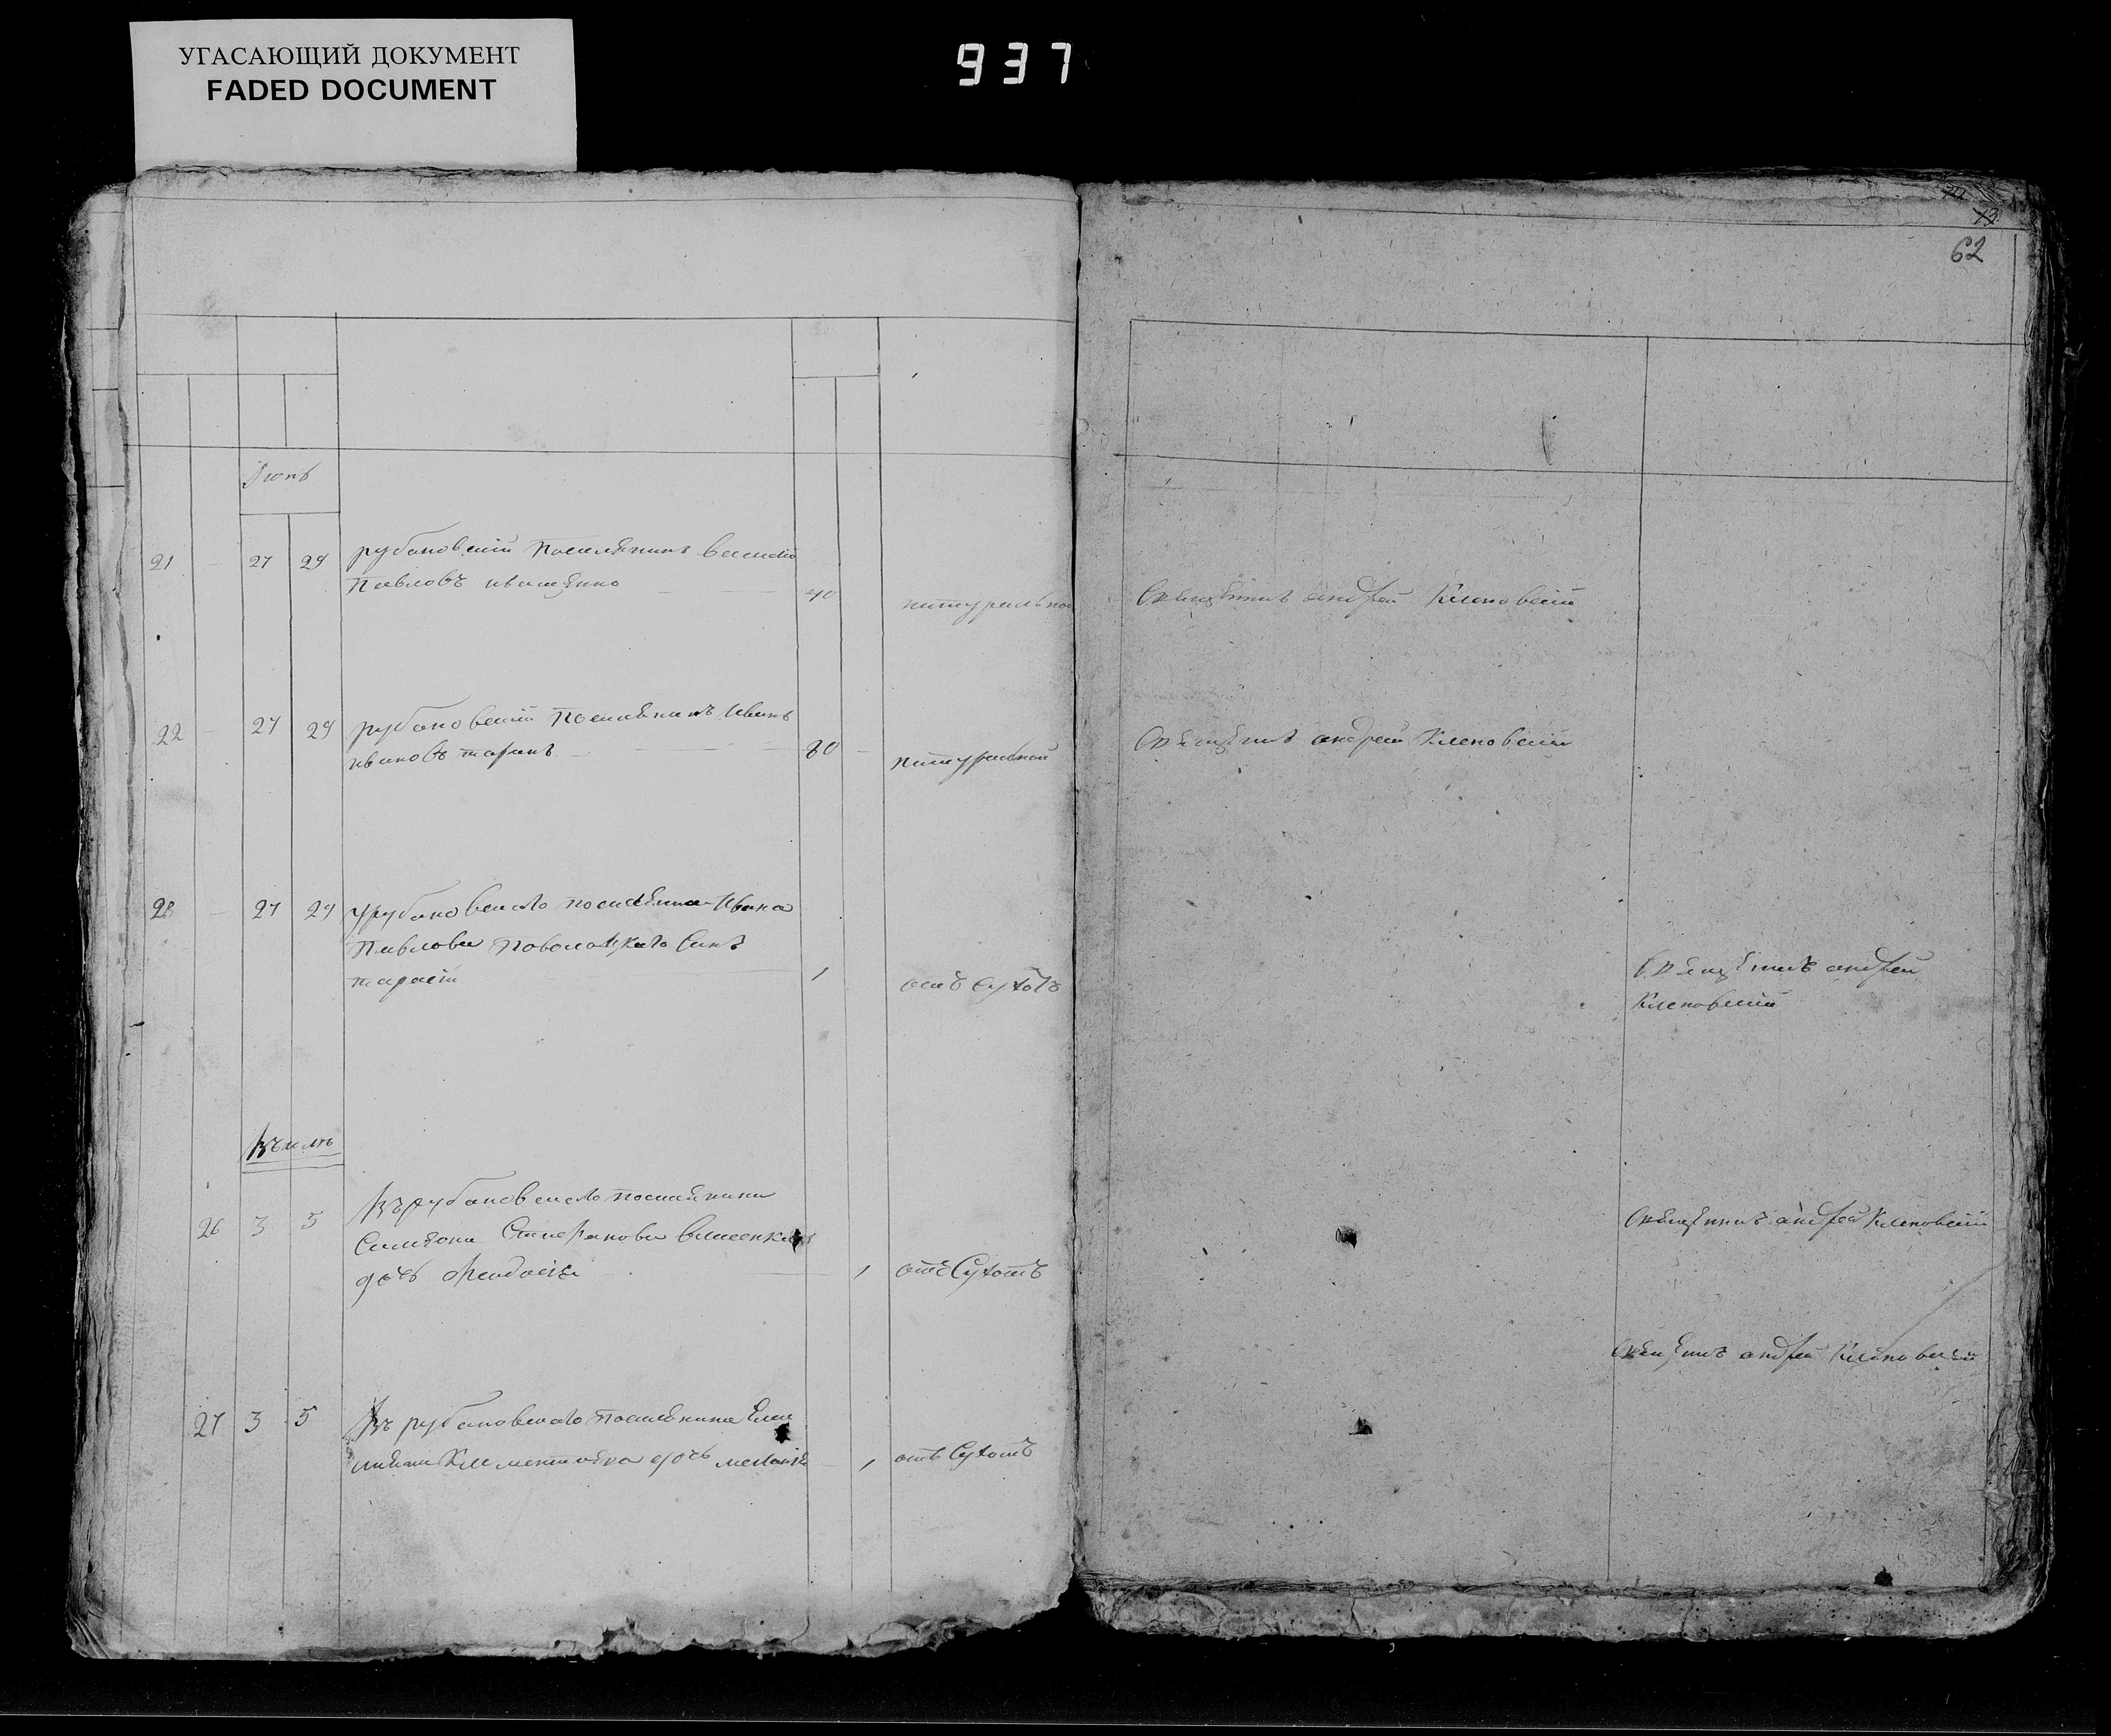 УГАСАЮЩИЙ ДОКУМЕНТ
FADED DOCUMENT
937
62
Июнь
21 27 29 рубановскій поселянинъ василій
Павловъ иващенко 40 натуральной Священникъ андрей Кленовскій
22 27 29 рубановскій поселянинъ Иванъ
ивановъ таранъ 80 натуральной Священникъ андрей Кленовскій
23 27 29 У рубановскаго поселянина Ивана
Павлова поволоцкаго Сынъ
тарасій 1 отъ Сухотъ Священникъ андрей
Кленовскій
26 3 5 рубановскаго поселянина
Симеона Стефанова
дочь Феодосія 1 отъ Сухотъ Священникъ андрей Кленовскій
27 3 5 рубановскаго поселянина
дочь 1 отъ Сухотъ Священникъ андрей Кленовскій